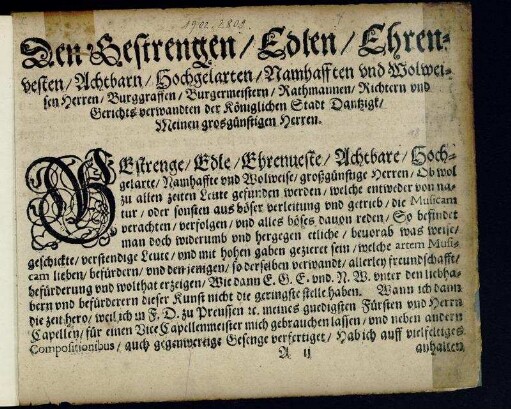 Den Gestrengen / Edlen / Ehren-
vesten / Achtbarn / Hochgelarten / Namhafften vnd Wolwei-
sen Herren / Burggraffen / Burgermeistern / Rathmannen / Richtern vnd
Gerichts verwandten der Königlichen Stadt Dantzigk /
Meinen grosgünstigen Herren.
GEstrenge / Edle / Ehrenueste / Achtbare / Hoch-
gelarte / Namhaffte vnd Wolweise / großgünstige Herren / Ob wol
zu allen zeiten Leute gefunden werden / welche entweder von na-
tur / oder sonsten aus böser verleitung vnd getrieb / die Musicam
verachten / verfolgen / vnd alles böses dauon reden / So befindet
man doch widerumb vnd hergegen etliche / beuorab was weise /
geschickte / verstendige Leute / vnd mit hohen gaben gezieret sein / welche artem Musi-
cam lieben / befürdern / vnd den jenigen / so derselben verwandt / allerley freundschafft /
befürderung vnd wolthat erzeigen / Wie dann E. G. E. vnd. N. W. vnter den liebha-
bern vnd befürderern dieser Kunst nicht die geringste stelle haben. Wann ich dann
die zeit hero / weil ich in F. D. zu Preussen ꝛc. meines gnedigsten Fürsten vnd Herrn
Capellen / für einen Vice Capellenmeister mich gebrauchen lassen / vnd neben andern
Compositionibus / auch gegenwertige Gesenge verfertiget / Hab ich auff vielfeltiges
A ij anhalten